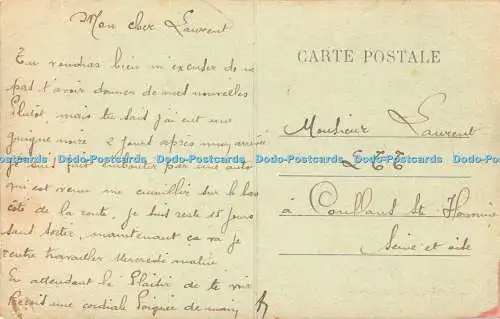 Mon cher Laurent
Tu voudras bien m'excuser de ne
pas t'avoir donner de mes nouvelles
Plutôt, mais tu sait j'ai eut une
guigne noire 2 jours après mon arrivée
je suis fait emboutir par une auto
qui est venue me cueillir sur le bas
côté de la route, je suis resté 15 jours
sans sortir, maintenant ca va je
rentre travailler Mercredi matin
En attendant le Plaisir de te voir
Reçoit une cordiale Poignée de main
CARTE POSTALE
Monsieur Laurent
à
Seine et oise
Dodo-Postcards Dodo-Postcards Dodo-Postcards Dodo-Postcards Dodo-Postcards